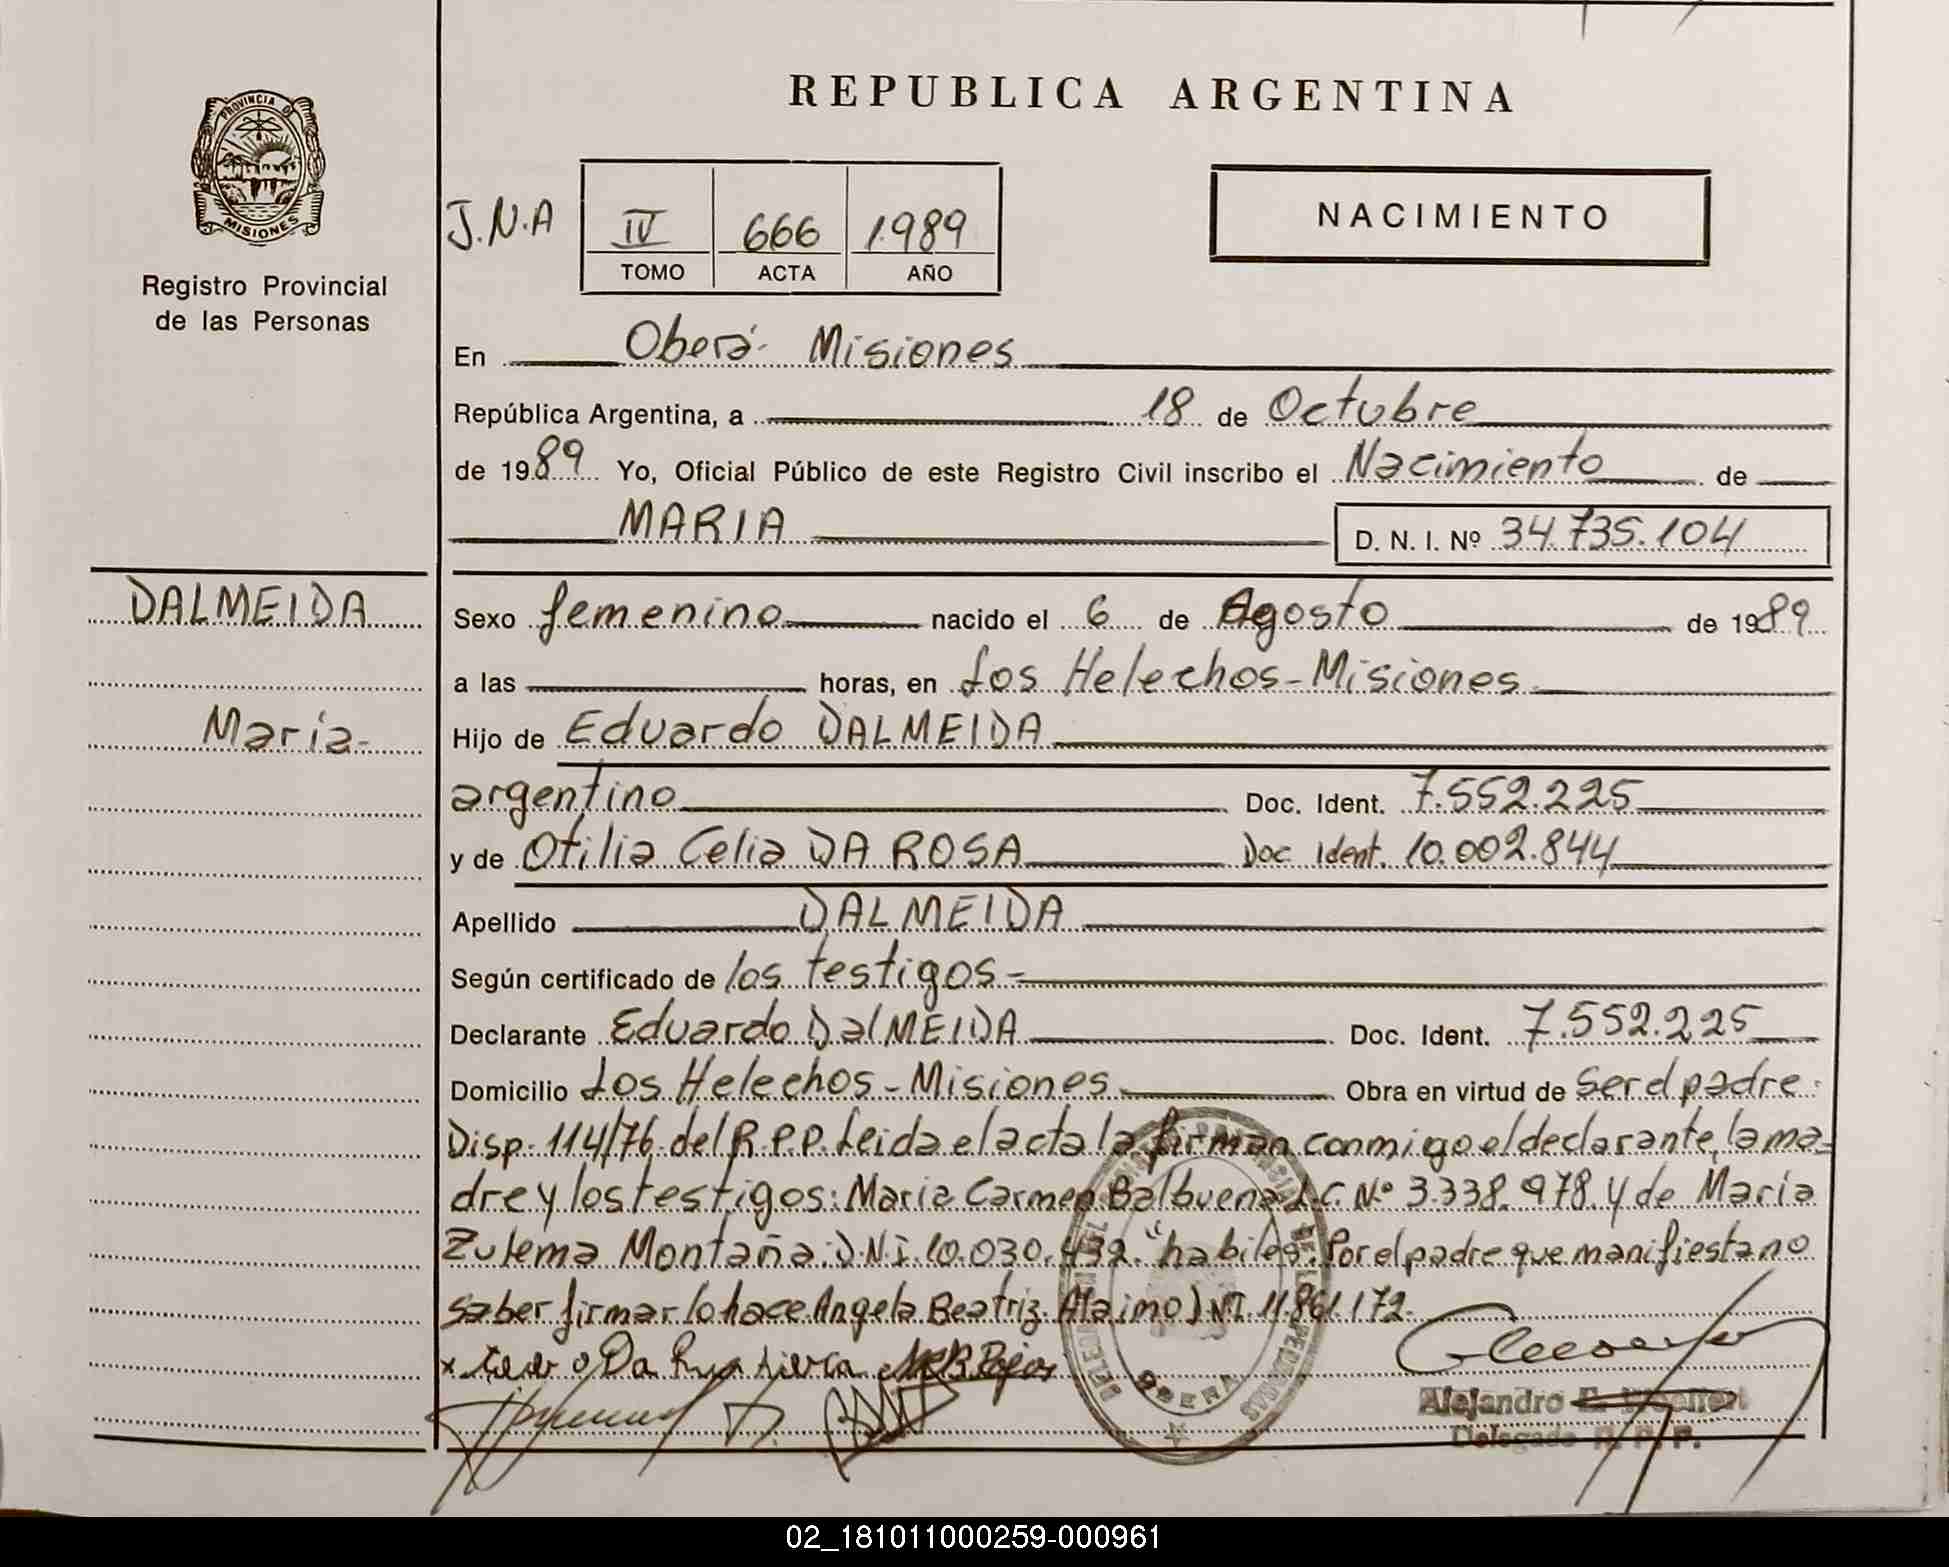 PROVINCIA DE
MISIONES
Registro Provincial
de las Personas
REPUBLICA ARGENTINA
J.N.A
IV 666 1989
TOMO ACTA AÑO
NACIMIENTO
En Oberá - Misiones
República Argentina, a 18 de Octubre
de 1989 Yo, Oficial Público de este Registro Civil inscribo el Nacimiento de
MARIA D. N. I. Nº 34.735.104
DALMEIDA
María-
Sexo femenino nacido el 6 de Agosto de 1989
a las horas, en Los Helechos - Misiones
Hijo de Eduardo DALMEIDA
argentino Doc. Ident. 7.552.225
y de Otilia Celia DA ROSA Doc Ident. 10.002.844
Apellido DALMEIDA
Según certificado de los testigos-
Declarante Eduardo DalMEIDA Doc. Ident. 7.552.225
Domicilio Los Helechos - Misiones Obra en virtud de Ser el padre.
Disp. 114/76 del R.P.P. Leida el acta la firman conmigo el declarante, la ma-
dre y los testigos: Maria Carmen Balbuena L.C. Nº 3.338.978. y de María
Zulema Montaña. D.N.I. 10.030.432. "habiles. Por el padre que manifiesta no
saber firmar lo hace Angela Beatriz Alaimo D.N.I. 11.861.172.
Da
OBERA
Alejandro
Delegado R. P. P.
02_181011000259-000961